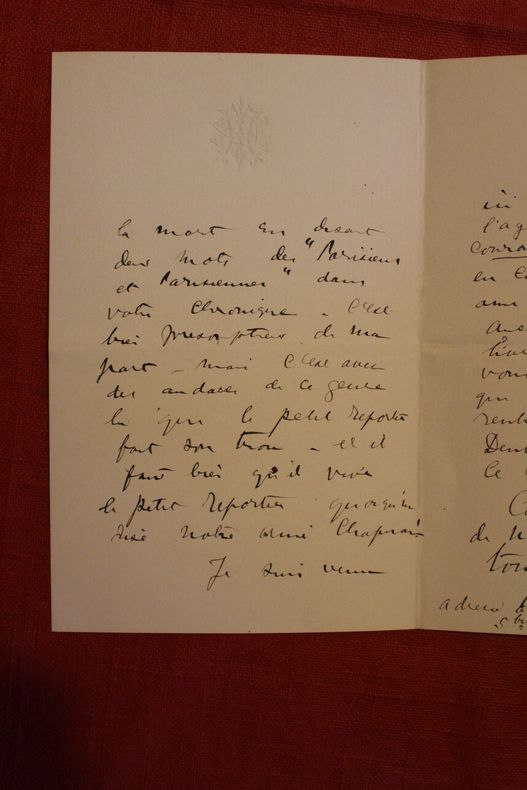 la mort en disant
deux mots des "Parisiens
et Parisiennes" dans
votre chronique - C'est
bien presomptueux de ma
part - mais c'est avec
des audaces de ce genre
là que le petit reporter
fait son trou - et il
faut bien qu'il vive
le petit reporter quoiqu'en
dise notre ami
Je suis venu
ici
l'ag
en C
vous
que
de
adresse
5 bis